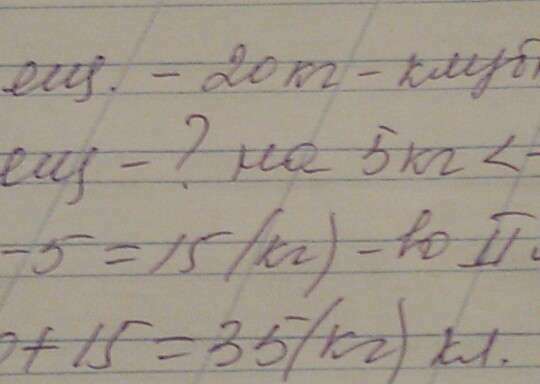 ещ. - 20кг - клуб
ещ - ? на 5кг < -
-5 = 15 (кг) - во II
0 + 15 = 35 (кг) кл.